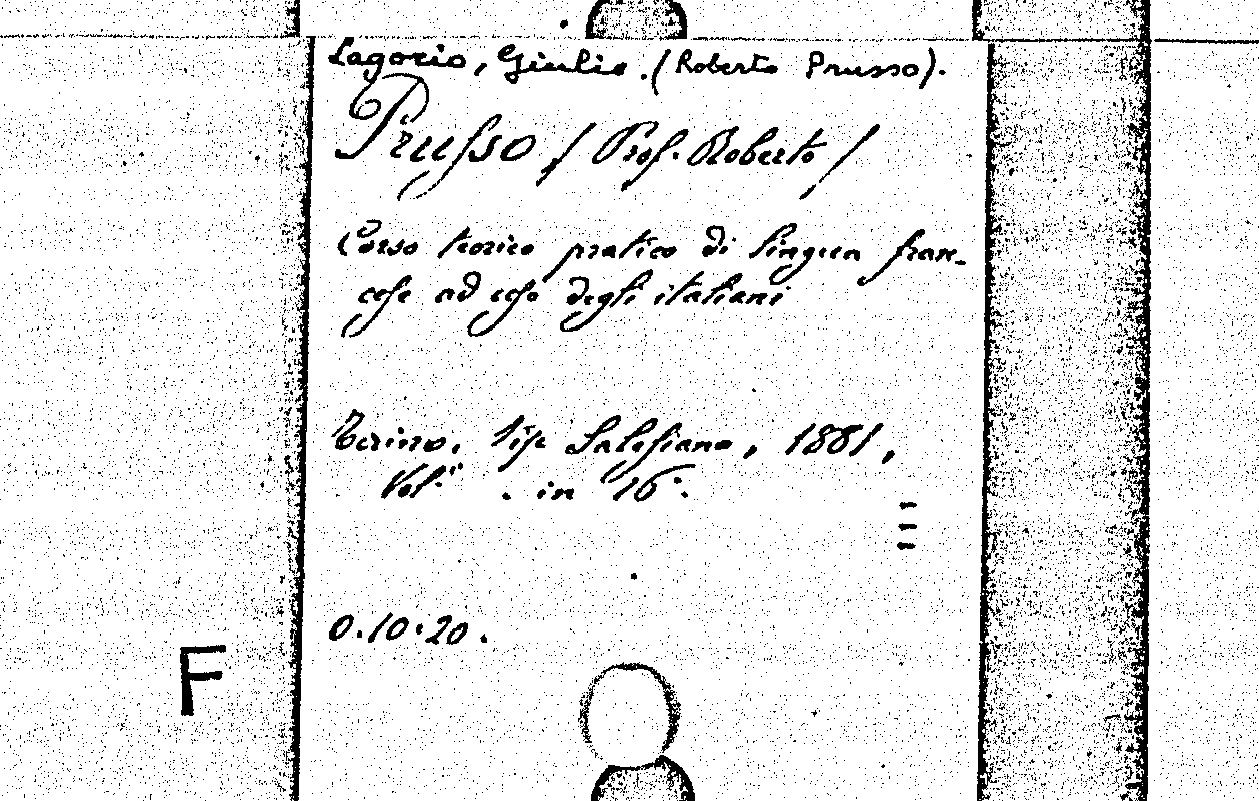 Lagorio, Giulio. (Roberto Prusso).
Prusso (Prof. Roberto)
Corso teorico pratico di lingua fran-
cese ad uso degli italiani
Torino, tip Salesiana, 1881,
Vol. . in 16°.
0.10.20.
F